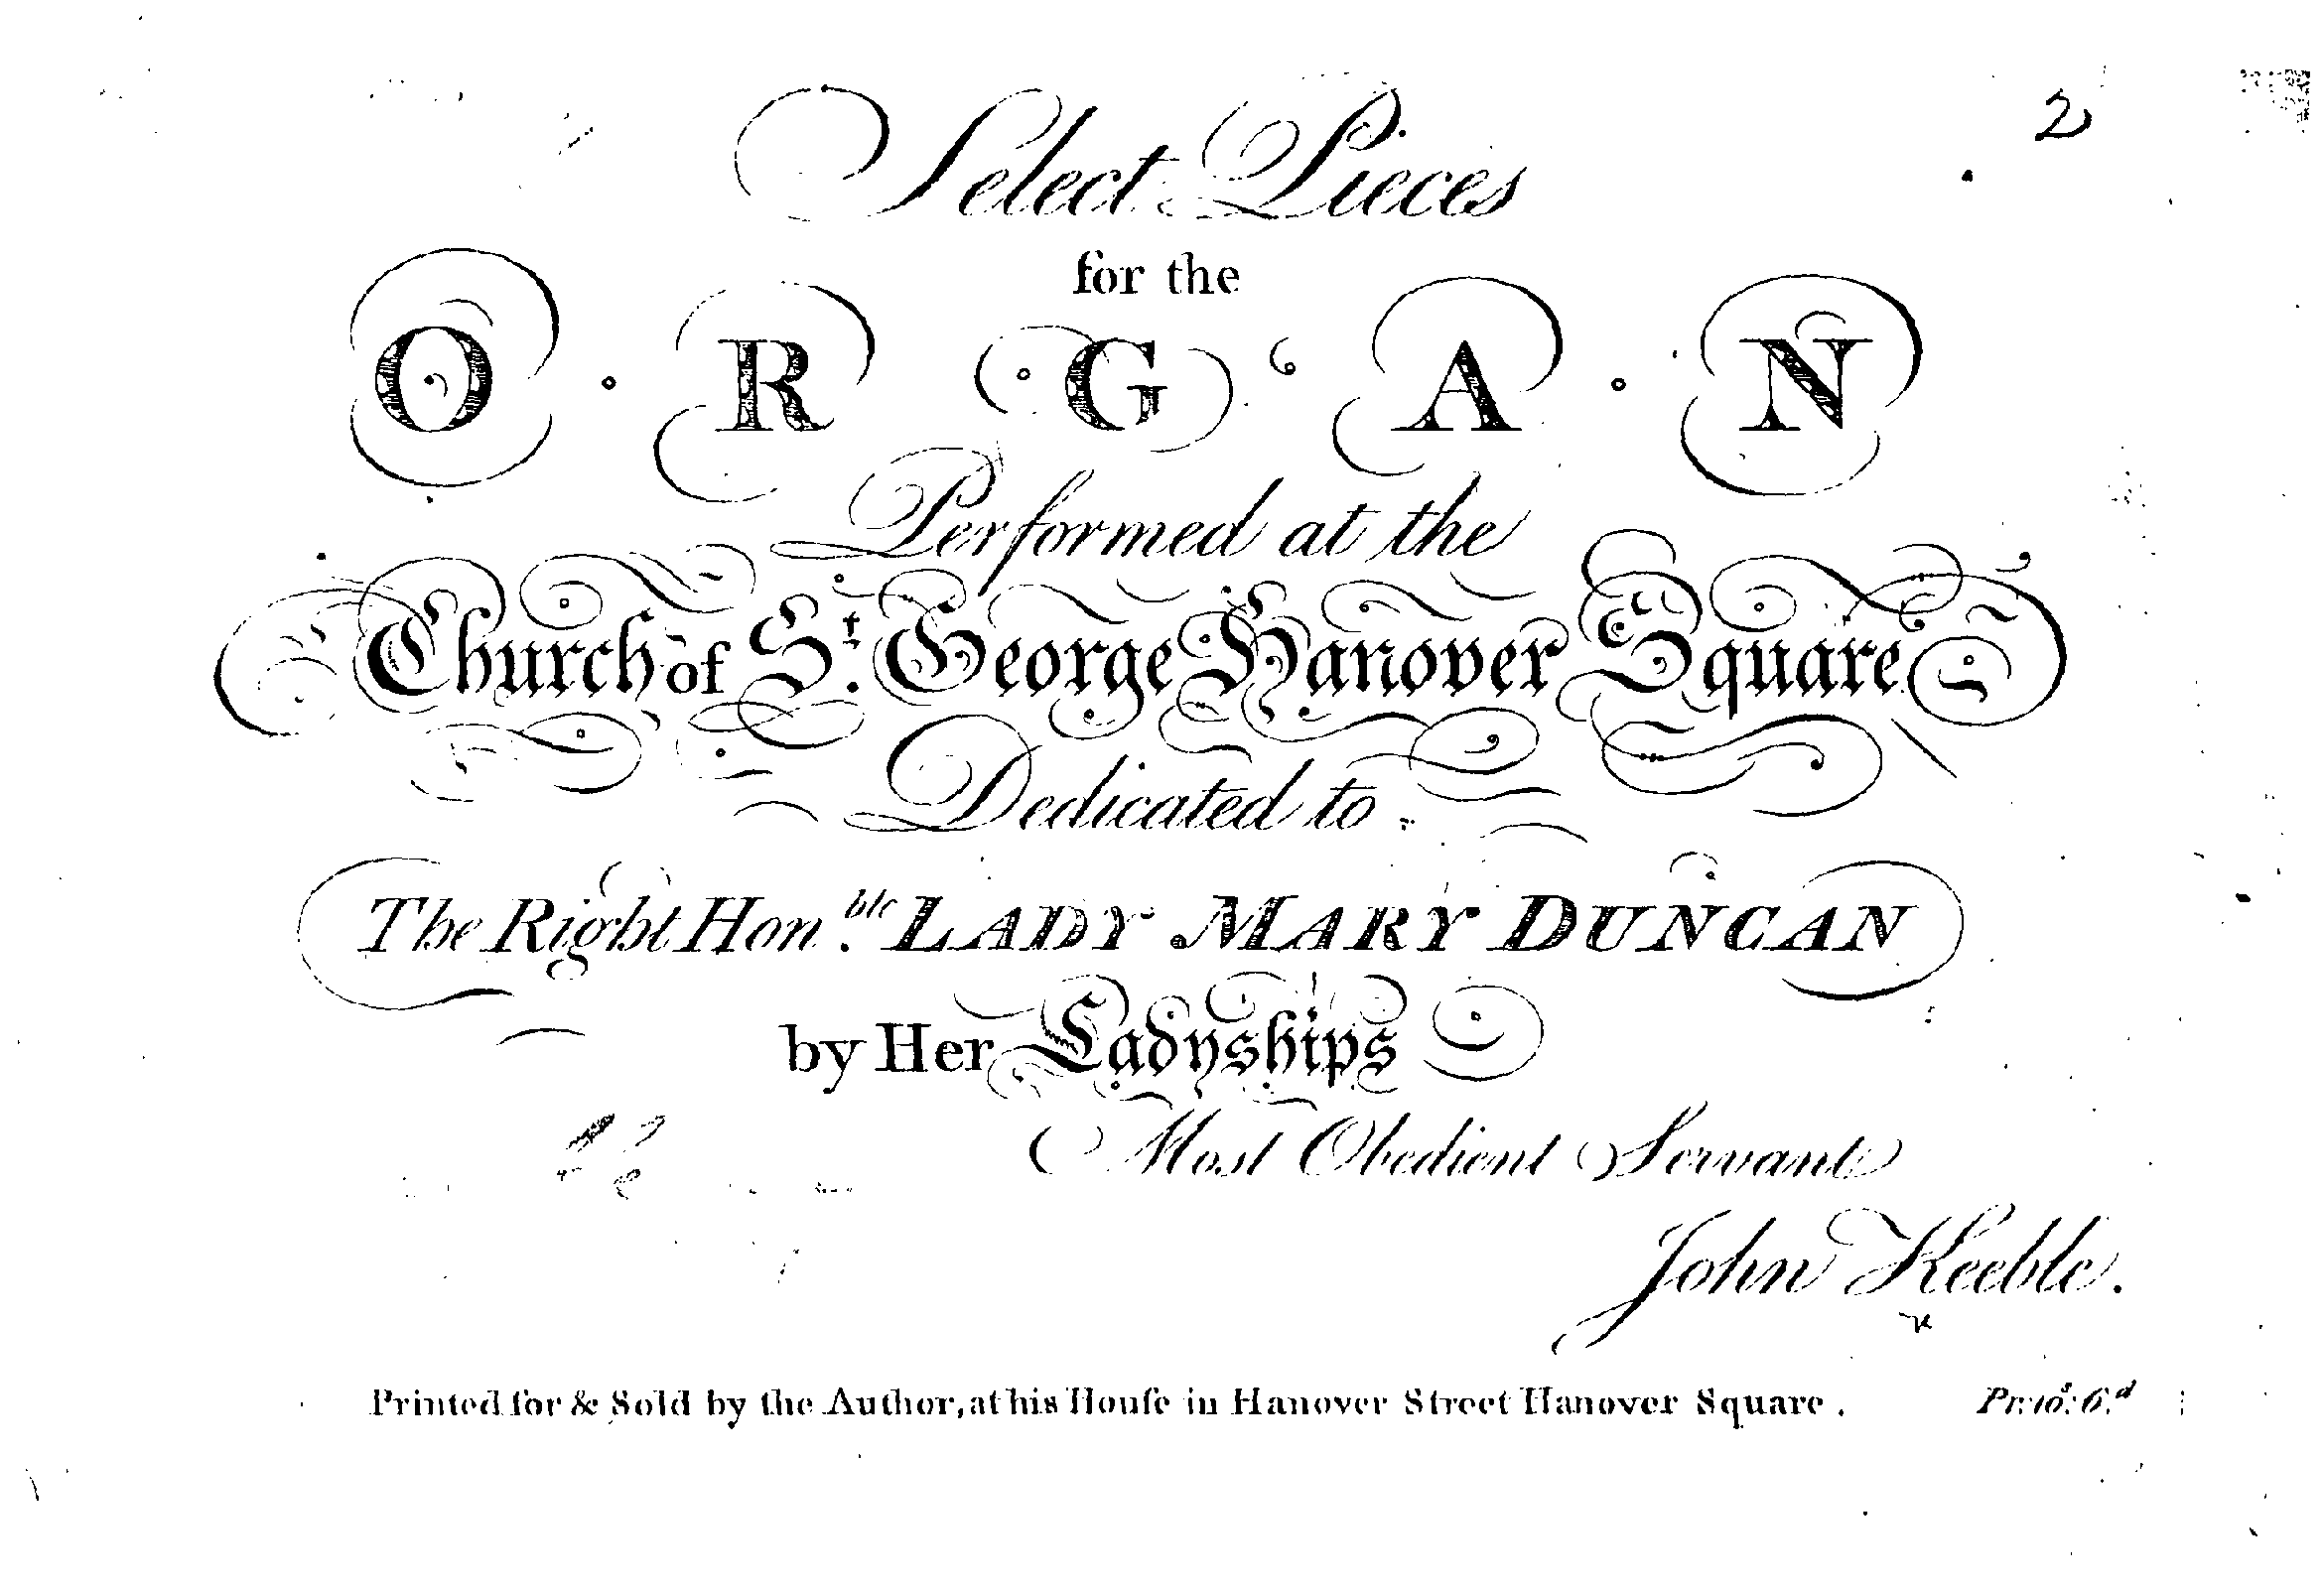 2
Select Pieces
for the
ORGAN
Performed at the
Church of St. George Hanover Square
Dedicated to
The Right Hon.ble LADY MARY DUNCAN
by Her Ladyships
Most Obedient Servant
John Keeble.
Printed for & Sold by the Author, at his Houſe in Hanover Street Hanover Square. Pr: 10s: 6d